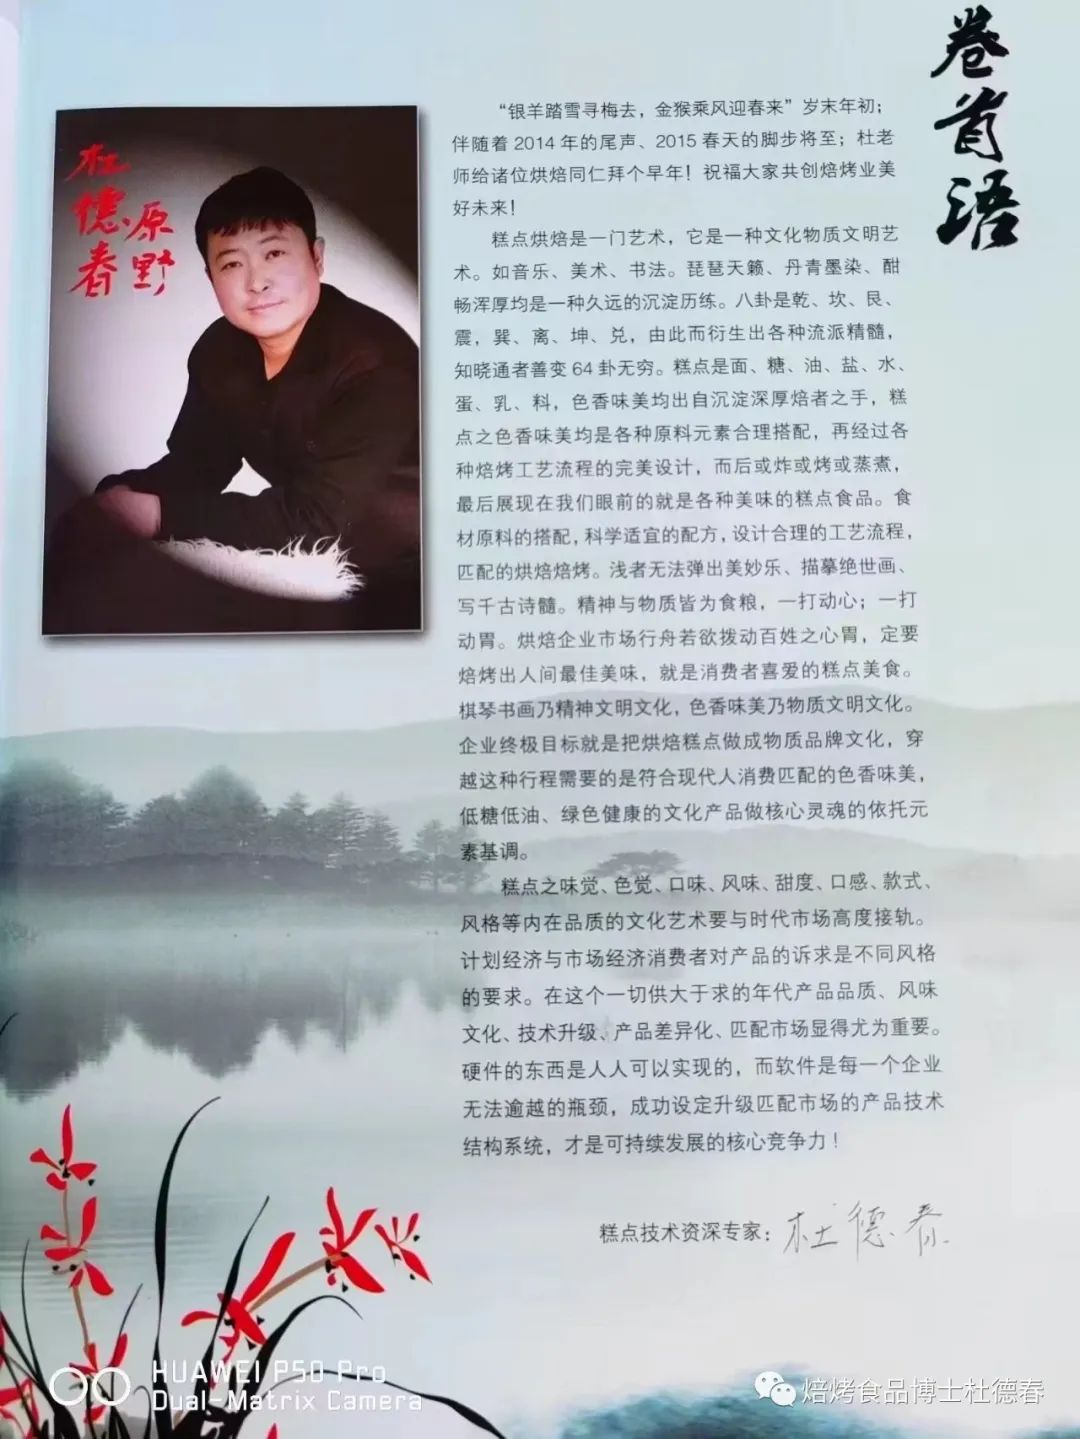 卷首语
杜德春
原野
“银羊踏雪寻梅去，金猴乘风迎春来”岁末年初；
伴随着 2014 年的尾声、2015 春天的脚步将至；杜老
师给诸位烘焙同仁拜个早年！祝福大家共创焙烤业美
好未来！
糕点烘焙是一门艺术，它是一种文化物质文明艺
术。如音乐、美术、书法。琵琶天籁、丹青墨染、酣
畅浑厚均是一种久远的沉淀历练。八卦是乾、坎、艮、
震，巽、离、坤、兑，由此而衍生出各种流派精髓，
知晓通者善变 64 卦无穷。糕点是面、糖、油、盐、水、
蛋、乳、料，色香味美均出自沉淀深厚焙者之手，糕
点之色香味美均是各种原料元素合理搭配，再经过各
种焙烤工艺流程的完美设计，而后或炸或烤或蒸煮，
最后展现在我们眼前的就是各种美味的糕点食品。食
材原料的搭配，科学适宜的配方，设计合理的工艺流程，
匹配的烘焙焙烤。浅者无法弹出美妙乐、描摹绝世画、
写千古诗髓。精神与物质皆为食粮，一打动心；一打
动胃。烘焙企业市场行舟若欲拨动百姓之心胃，定要
焙烤出人间最佳美味，就是消费者喜爱的糕点美食。
棋琴书画乃精神文明文化，色香味美乃物质文明文化。
企业终极目标就是把烘焙糕点做成物质品牌文化，穿
越这种行程需要的是符合现代人消费匹配的色香味美，
低糖低油、绿色健康的文化产品做核心灵魂的依托元
素基调。
糕点之味觉、色觉、口味、风味、甜度、口感、款式、
风格等内在品质的文化艺术要与时代市场高度接轨。
计划经济与市场经济消费者对产品的诉求是不同风格
的要求。在这个一切供大于求的年代产品品质、风味
文化、技术升级、产品差异化、匹配市场显得尤为重要。
硬件的东西是人人可以实现的，而软件是每一个企业
无法逾越的瓶颈，成功设定升级匹配市场的产品技术
结构系统，才是可持续发展的核心竞争力！
糕点技术资深专家：杜德春
HUAWEI P50 Pro
Dual-Matrix Camera
焙烤食品博士杜德春